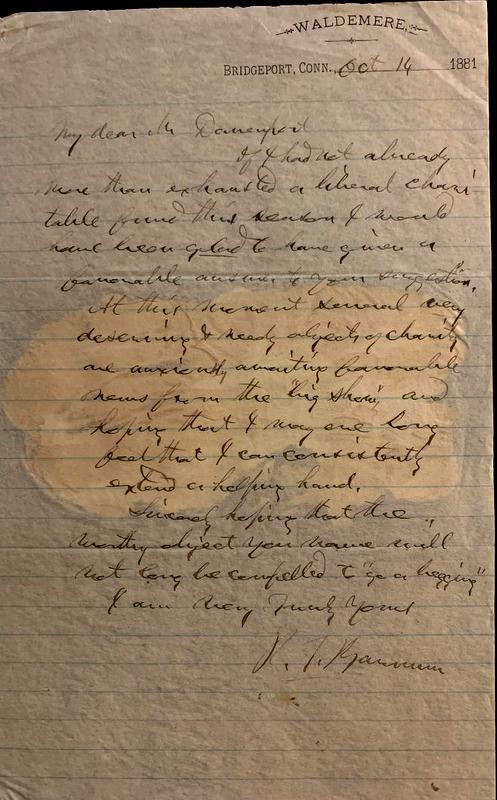 WALDEMERE,
BRIDGEPORT, CONN., Oct 14 1881
My dear Mr Davenport
If I had not already
more than exhausted a liberal chari-
table fund this season I would
have been glad to have given a
favorable answer to your suggestion.
At this moment several very
deserving & needy objects of charity
are anxiously awaiting favorable
news from the "big show", and
hoping that I may ere long
feel that I can consistently
extend a helping hand.
Sincerely hoping that the
worthy object you name will
not long be compelled to "go a begging"
I am very Truly Yours
P. T. Barnum